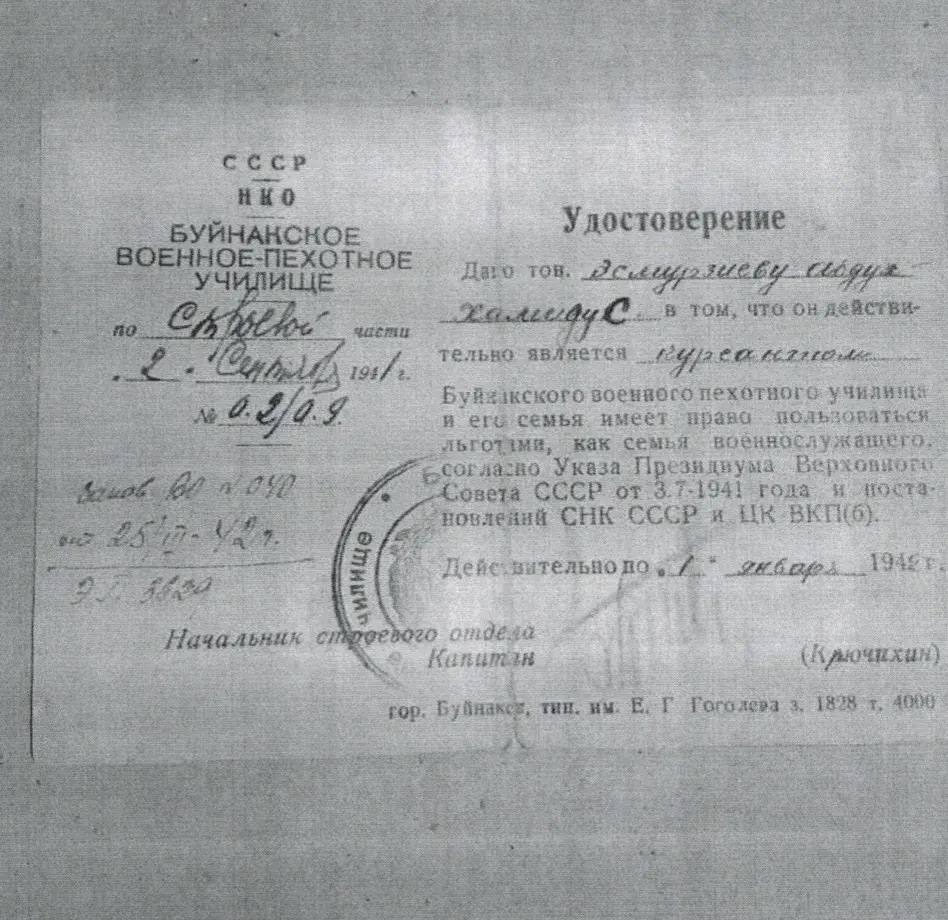 СССР
НКО
БУЙНАКСКОЕ
ВОЕННО-ПЕХОТНОЕ
УЧИЛИЩЕ
по Строевой части
„2“ Сентября 1941 г.
№ 0.2/0.9.
ВО № 040
от 25/III-42 г.
Удостоверение
Даго тов. Эсмурзиеву Абдул
Хамиду С. в том, что он действи-
тельно является курсантом
Буйнакского военного пехотного училища
и его семья имеет право пользоваться
льготами, как семья военнослужащего,
согласно Указа Президиума Верховного
Совета СССР от 3.7-1941 года и поста-
новлений СНК СССР и ЦК ВКП(б).
Действительно по „1“ января 1942 г.
училище
Начальник строевого отдела
Капитан (Крючихин)
гор. Буйнакск, тип. им. Е. Г Гоголева з. 1828 т. 4000